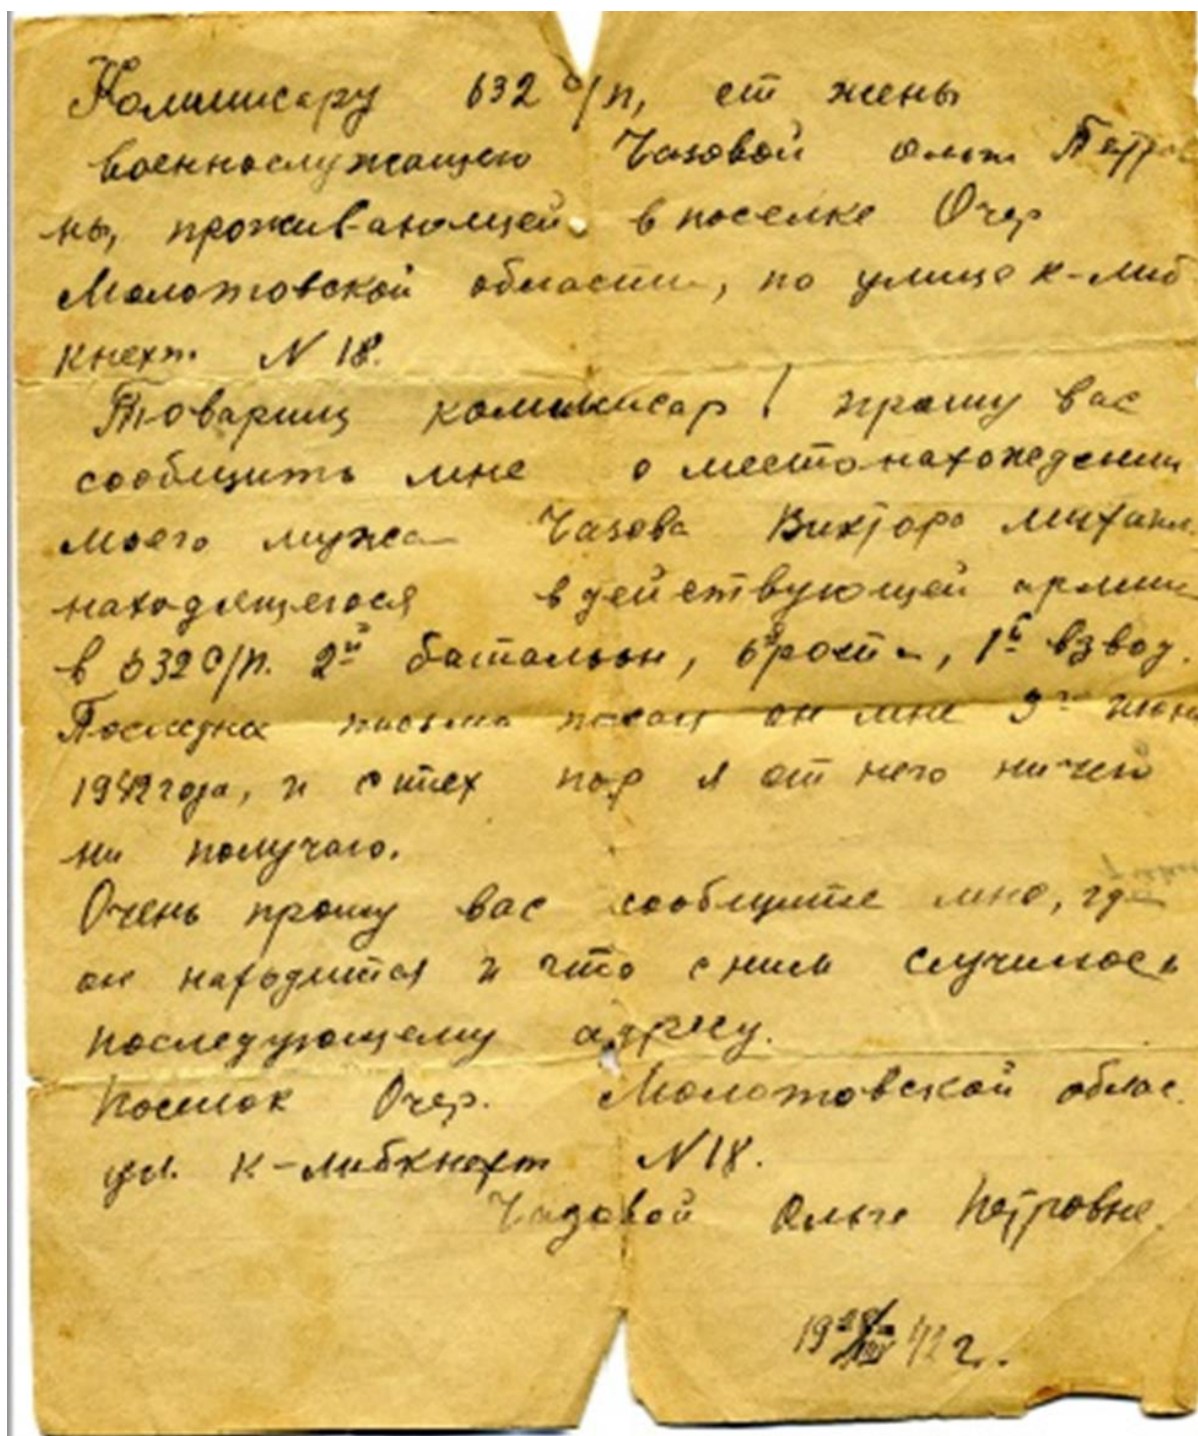 Комиссару 632 с/п, от жены
военнослужащего Чазовой Ольги Петров
ны, проживающей в поселке Очер
Молотовской области, по улице К-Либ
кнехт N 18.
Товарищ комиссар! прошу вас
сообщить мне о местонахождении
моего мужа Чазова Виктора Михаил.
находящегося в действующей армии
в 632 с/п. 2й батальон, 6 рота, 1й взвод.
письмо писал он мне 9го июня
1942 года, и с тех пор я от него ничего
ни получаю.
Очень прошу вас сообщите мне, где
он находится и что с ним случилось
последующему адресу.
Поселок Очер. Молотовской облас.
ул. К-Либкнехт N 18.
Чазовой Ольге Петровне.
19 42 г.